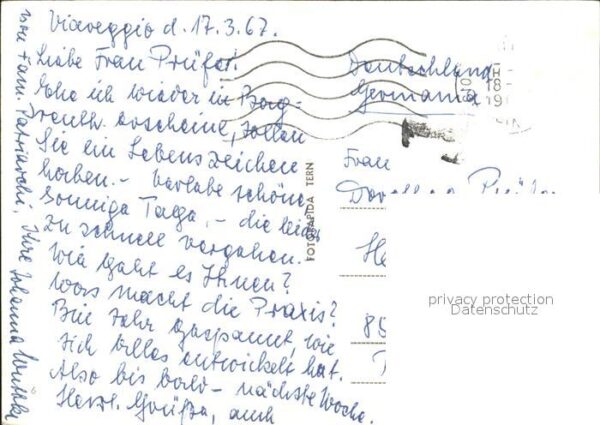 Viareggio d. 17.3.67.
Liebe Frau Prüfer!
Ehe ich wieder in Berg-
Sie ein Lebenszeichen
haben. - Verlebe schöne
sonnige Tage, - die leider
zu schnell vergehen.
Wie geht es Ihnen?
Was macht die Praxis?
Bin sehr gespannt, wie
sich alles entwickelt hat.
Also bis bald - nächste Woche.
Herzl. Grüße, auch
von Fam. Patriarchi, Ihre Johanna
FOTORAPIDA TERNI
Deutschland
Germania
18-
19
Frau
privacy protection
Datenschutz